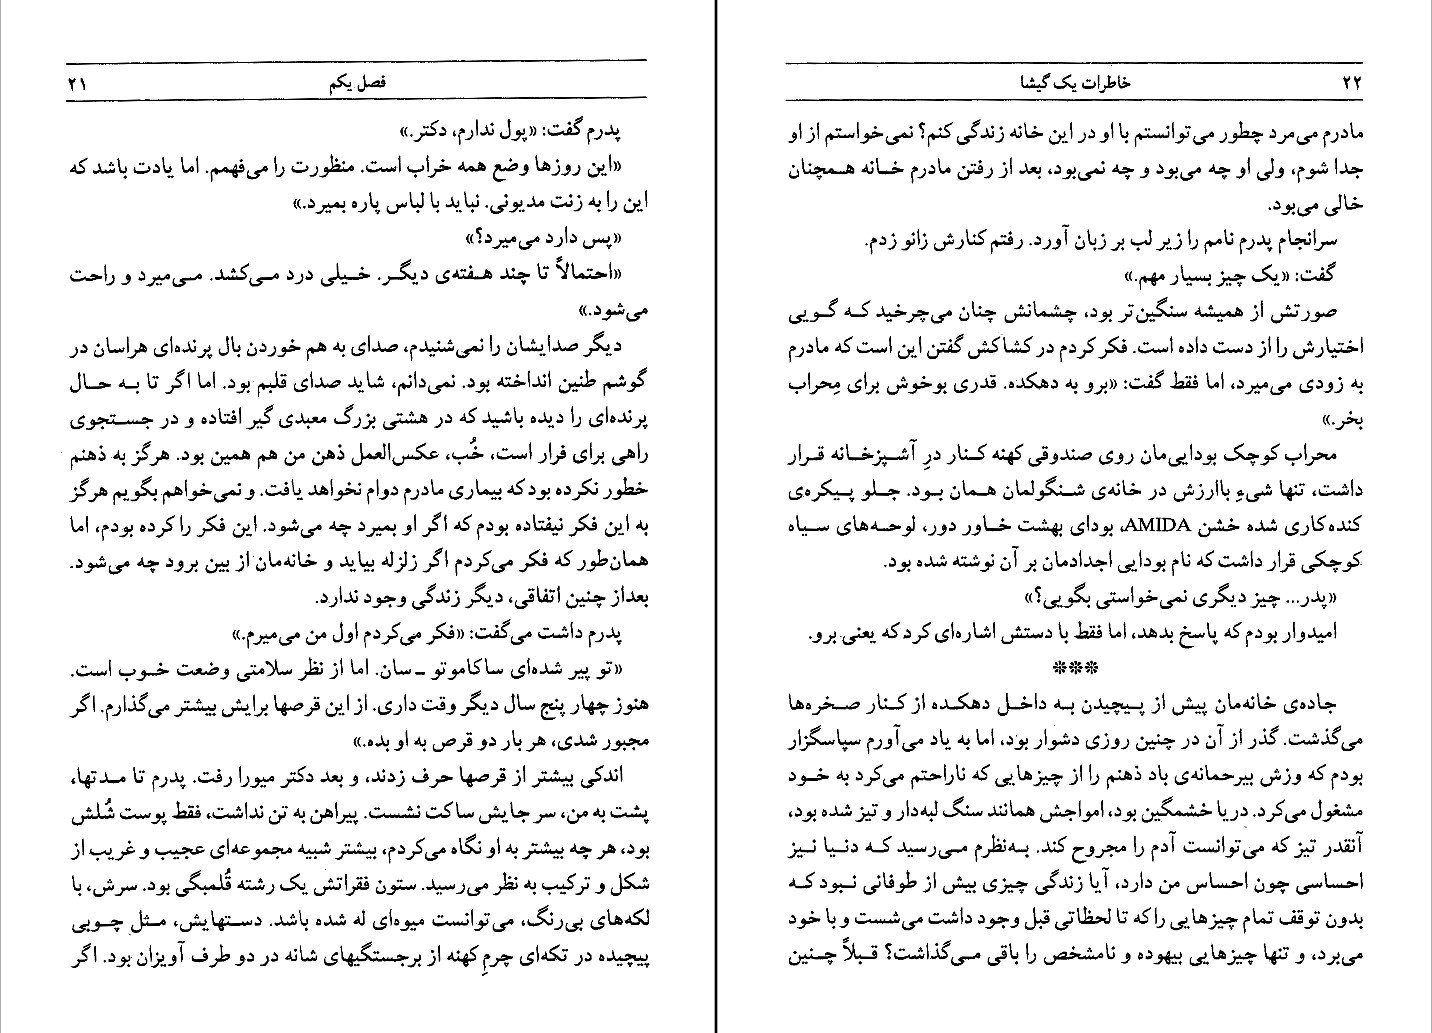 ۲۱ فصل یکم
پدرم گفت: «پول ندارم، دکتر.»
«این روزها وضع همه خراب است. منظورت را می‌فهمم. اما یادت باشد که
این را به زنت مدیونی. نباید با لباس پاره بمیرد.»
«پس دارد می‌میرد؟»
«احتمالاً تا چند هفته‌ی دیگر. خیلی درد می‌کشد. می‌میرد و راحت
می‌شود.»
دیگر صدایشان را نمی‌شنیدم، صدای به هم خوردن بال پرنده‌ای هراسان در
گوشم طنین انداخته بود. نمی‌دانم، شاید صدای قلبم بود. اما اگر تا به حال
پرنده‌ای را دیده باشید که در هشتی بزرگ معبدی گیر افتاده و در جستجوی
راهی برای فرار است، خُب، عکس‌العمل ذهن من هم همین بود. هرگز به ذهنم
خطور نکرده بود که بیماری مادرم دوام نخواهد یافت. و نمی‌خواهم بگویم هرگز
به این فکر نیفتاده بودم که اگر او بمیرد چه می‌شود. این فکر را کرده بودم، اما
همان‌طور که فکر می‌کردم اگر زلزله بیاید و خانه‌مان از بین برود چه می‌شود.
بعداز چنین اتفاقی، دیگر زندگی وجود ندارد.
پدرم داشت می‌گفت: «فکر می‌کردم اول من می‌میرم.»
«تو پیر شده‌ای ساکاموتو ـ سان. اما از نظر سلامتی وضعت خوب است.
هنوز چهار پنج سال دیگر وقت داری. از این قرصها برایش بیشتر می‌گذارم. اگر
مجبور شدی، هر بار دو قرص به او بده.»
اندکی بیشتر از قرصها حرف زدند، و بعد دکتر میورا رفت. پدرم تا مدتها،
پشت به من، سر جایش ساکت نشست. پیراهن به تن نداشت، فقط پوست شُلش
بود، هر چه بیشتر به او نگاه می‌کردم، بیشتر شبیه مجموعه‌ای عجیب و غریب از
شکل و ترکیب به نظر می‌رسید. ستون فقراتش یک رشته قُلمبگی بود. سرش، با
لکه‌های بی‌رنگ، می‌توانست میوه‌ای له شده باشد. دستهایش، مثل چوبی
پیچیده در تکه‌ای چرمِ کهنه از برجستگیهای شانه در دو طرف آویزان بود. اگر
۲۲ خاطرات یک گیشا
مادرم می‌مرد چطور می‌توانستم با او در این خانه زندگی کنم؟ نمی‌خواستم از او
جدا شوم، ولی او چه می‌بود و چه نمی‌بود، بعد از رفتن مادرم خانه همچنان
خالی می‌بود.
سرانجام پدرم نامم را زیر لب بر زبان آورد. رفتم کنارش زانو زدم.
گفت: «یک چیز بسیار مهم.»
صورتش از همیشه سنگین‌تر بود، چشمانش چنان می‌چرخید که گویی
اختیارش را از دست داده است. فکر کردم در کشاکش گفتن این است که مادرم
به زودی می‌میرد، اما فقط گفت: «برو به دهکده. قدری بوخوش برای مِحراب
بخر.»
محراب کوچک بودایی‌مان روی صندوقی کهنه کنار درِ آشپزخانه قرار
داشت، تنها شیءِ باارزش در خانه‌ی شنگولمان همان بود. جلو پیکره‌ی
کنده‌کاری شده خشن AMIDA، بودای بهشت خاور دور، لوحه‌های سیاه
کوچکی قرار داشت که نام بودایی اجدادمان بر آن نوشته شده بود.
«پدر... چیز دیگری نمی‌خواستی بگویی؟»
امیدوار بودم که پاسخ بدهد، اما فقط با دستش اشاره‌ای کرد که یعنی برو.
***
جاده‌ی خانه‌مان پیش از پیچیدن به داخل دهکده از کنار صخره‌ها
می‌گذشت. گذر از آن در چنین روزی دشوار بود، اما به یاد می‌آورم سپاسگزار
بودم که وزش بیرحمانه‌ی باد ذهنم را از چیزهایی که ناراحتم می‌کرد به خود
مشغول می‌کرد. دریا خشمگین بود، امواجش همانند سنگ لبه‌دار و تیز شده بود،
آنقدر تیز که می‌توانست آدم را مجروح کند. به‌نظرم می‌رسید که دنیا نیز
احساسی چون احساس من دارد، آیا زندگی چیزی بیش از طوفانی نبود که
بدون توقف تمام چیزهایی را که تا لحظاتی قبل وجود داشت می‌شست و با خود
می‌برد، و تنها چیزهایی بیهوده و نامشخص را باقی می‌گذاشت؟ قبلاً چنین